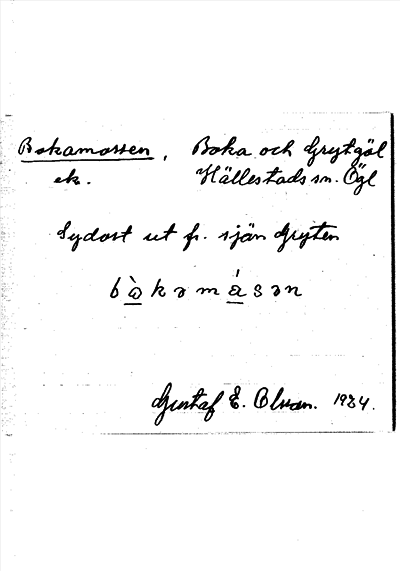 Bokamossen, Boka och Grytgöl
ek. Hällestads sn. Ögl
Sydost ut fr. sjön Gryten
b ò̲ k ə m ǻ̲ s ə n
Gustaf E. Olsson. 1934.